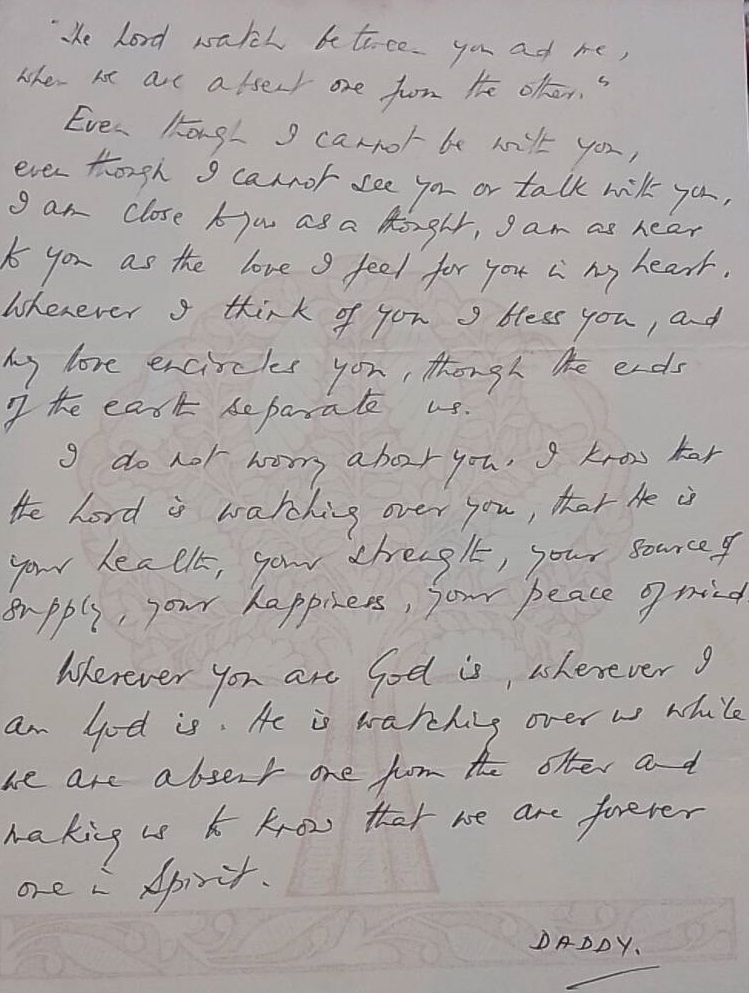 "The Lord watch between you and me,
when we are absent one from the other."
Even though I cannot be with you,
even though I cannot see you or talk with you,
I am close to you as a thought, I am as near
to you as the love I feel for you in my heart.
Whenever I think of you I bless you, and
my love encircles you, though the ends
of the earth separate us.
I do not worry about you. I know that
the Lord is watching over you, that He is
your health, your strength, your source of
supply, your happiness, your peace of mind
Wherever you are God is, wherever I
am God is. He is watching over us while
we are absent one from the other and
making us to know that we are forever
one in Spirit.
DADDY.